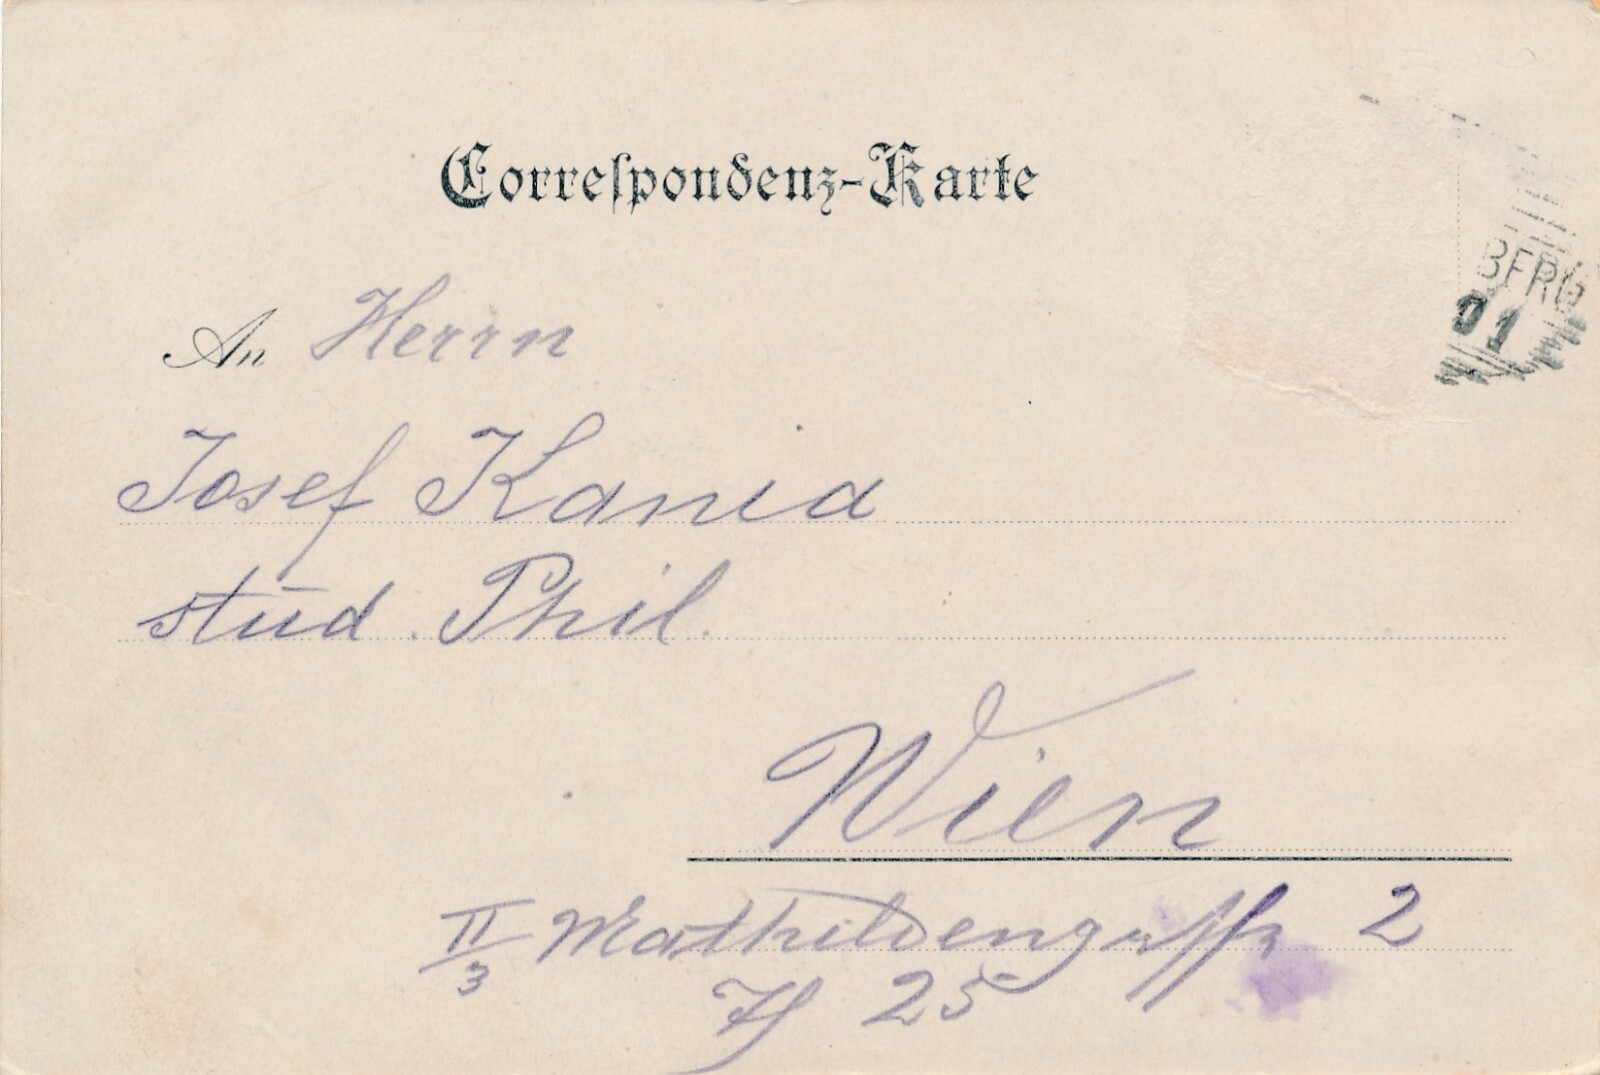 Correspondenz-Karte
BERG
01
An Herrn
Josef Kania
stud. Phil.
Wien
II/3 Mathildengasse 2
Th 25